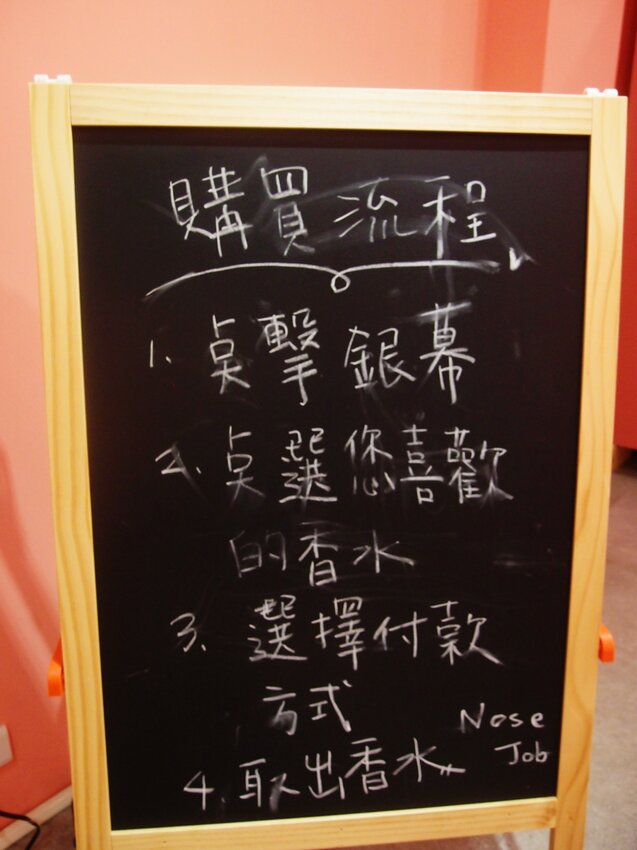 購買流程
1. 点擊銀幕
2. 点選您喜歡
的香水
3. 選擇付款
方式
4. 取出香水
Nose
Job